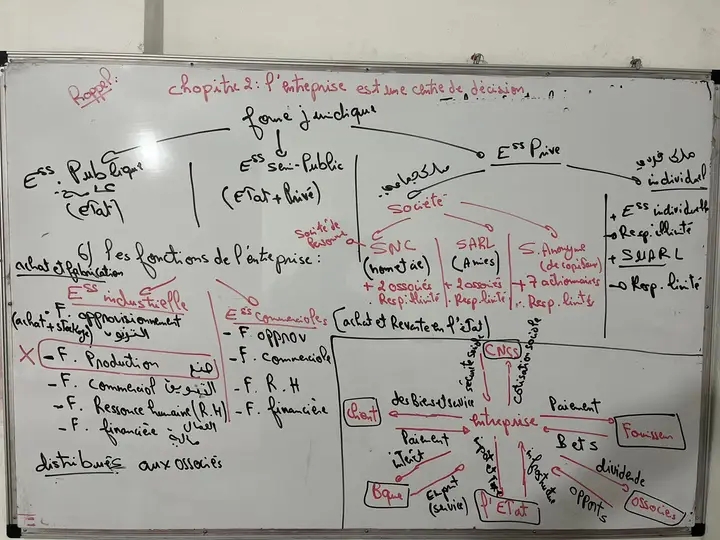 Rappel:
chapitre 2: l'entreprise est une centre de décision
forme juridique
Ess. Publique
(ETat)
Ess semi-Public
(ETat + Privé)
Ess Prive
individuel
Société
Société de Personne
SNC
(nom et cie)
+ 2 associés
Resp. illimité
SARL
(Amies)
+ 2 associés
. Resp. limité
S. Anonyme
(de capitaux)
+ 7 actionnaires
. Resp. limité
+ Ess individuelle
Resp. illimité
+ SUARL
Resp. limité
6) les fonctions de l'entreprise :
achat et fabrication
Ess industrielle
- F. approvisionnement
(achat + stockage) التزويد
X - F. Production صنع
- F. Commercial التسويق
- F. Ressource humaine (R.H)
- F. financière مالية
العمال
distribués aux associés
Ess commerciales
(achat et Revente en l'état)
- F. approv
- F. commerciale
- F. R.H
- F. financière
CNSS
sécurité sociale
cotisation sociale
Client
des Biens et service
Paiement
Entreprise
Paiement
B et s
Fournisseur
intérêt
Bque
Emprunt
(service)
l'ETat
dividende
apports
associés